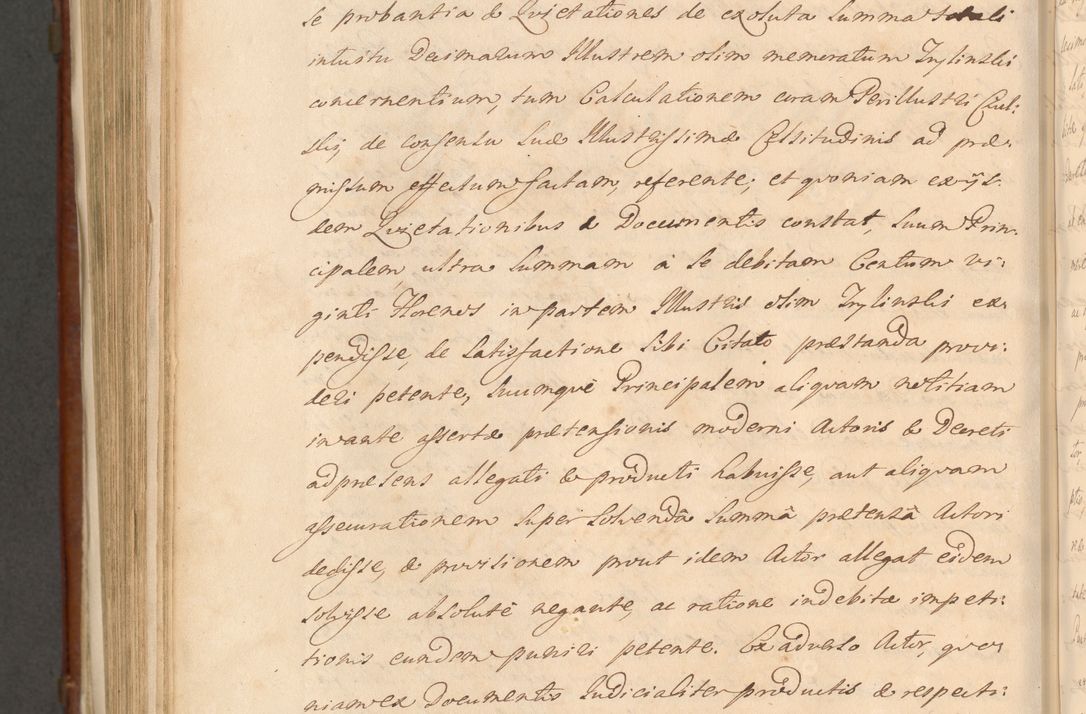 se probantia & Qvietationes de exoluta Summa totali
intuitu Decimarum Illustrem olim memoratum Trylinski
concernentium, tum Calculationem coram Perillustri Ciel:
ski, de consensu Suæ Illustrissimæ Celsitudinis ad præ-
missum effectum factam, referente; et qvoniam ex iis-
dem Qvietationibus & Documentis constat, Suum Prin-
cipalem, ultra Summam à Se debitam Centum vi-
ginti Florenos in partem Illustris olim Trylinski ex-
pendisse, de Satisfactione Sibi Citato præstanda provi-
deri petente, Suumqvè Principalem aliqvam notitiam
in ante assertæ prætensionis moderni Actoris & Decreti
ad præsens allegati & producti habuisse, aut aliqvam
assecurationem Super Solvendâ Summâ prætensâ Actori
dedisse, & provisionem prout idem Actor allegat eidem
solvisse absolutè negante, ac ratione indebitæ impeti-
tionis eundem puniri petente. Ex adverso Actor, qvo-
niam ex Documentis Judicialiter productis & respecti-